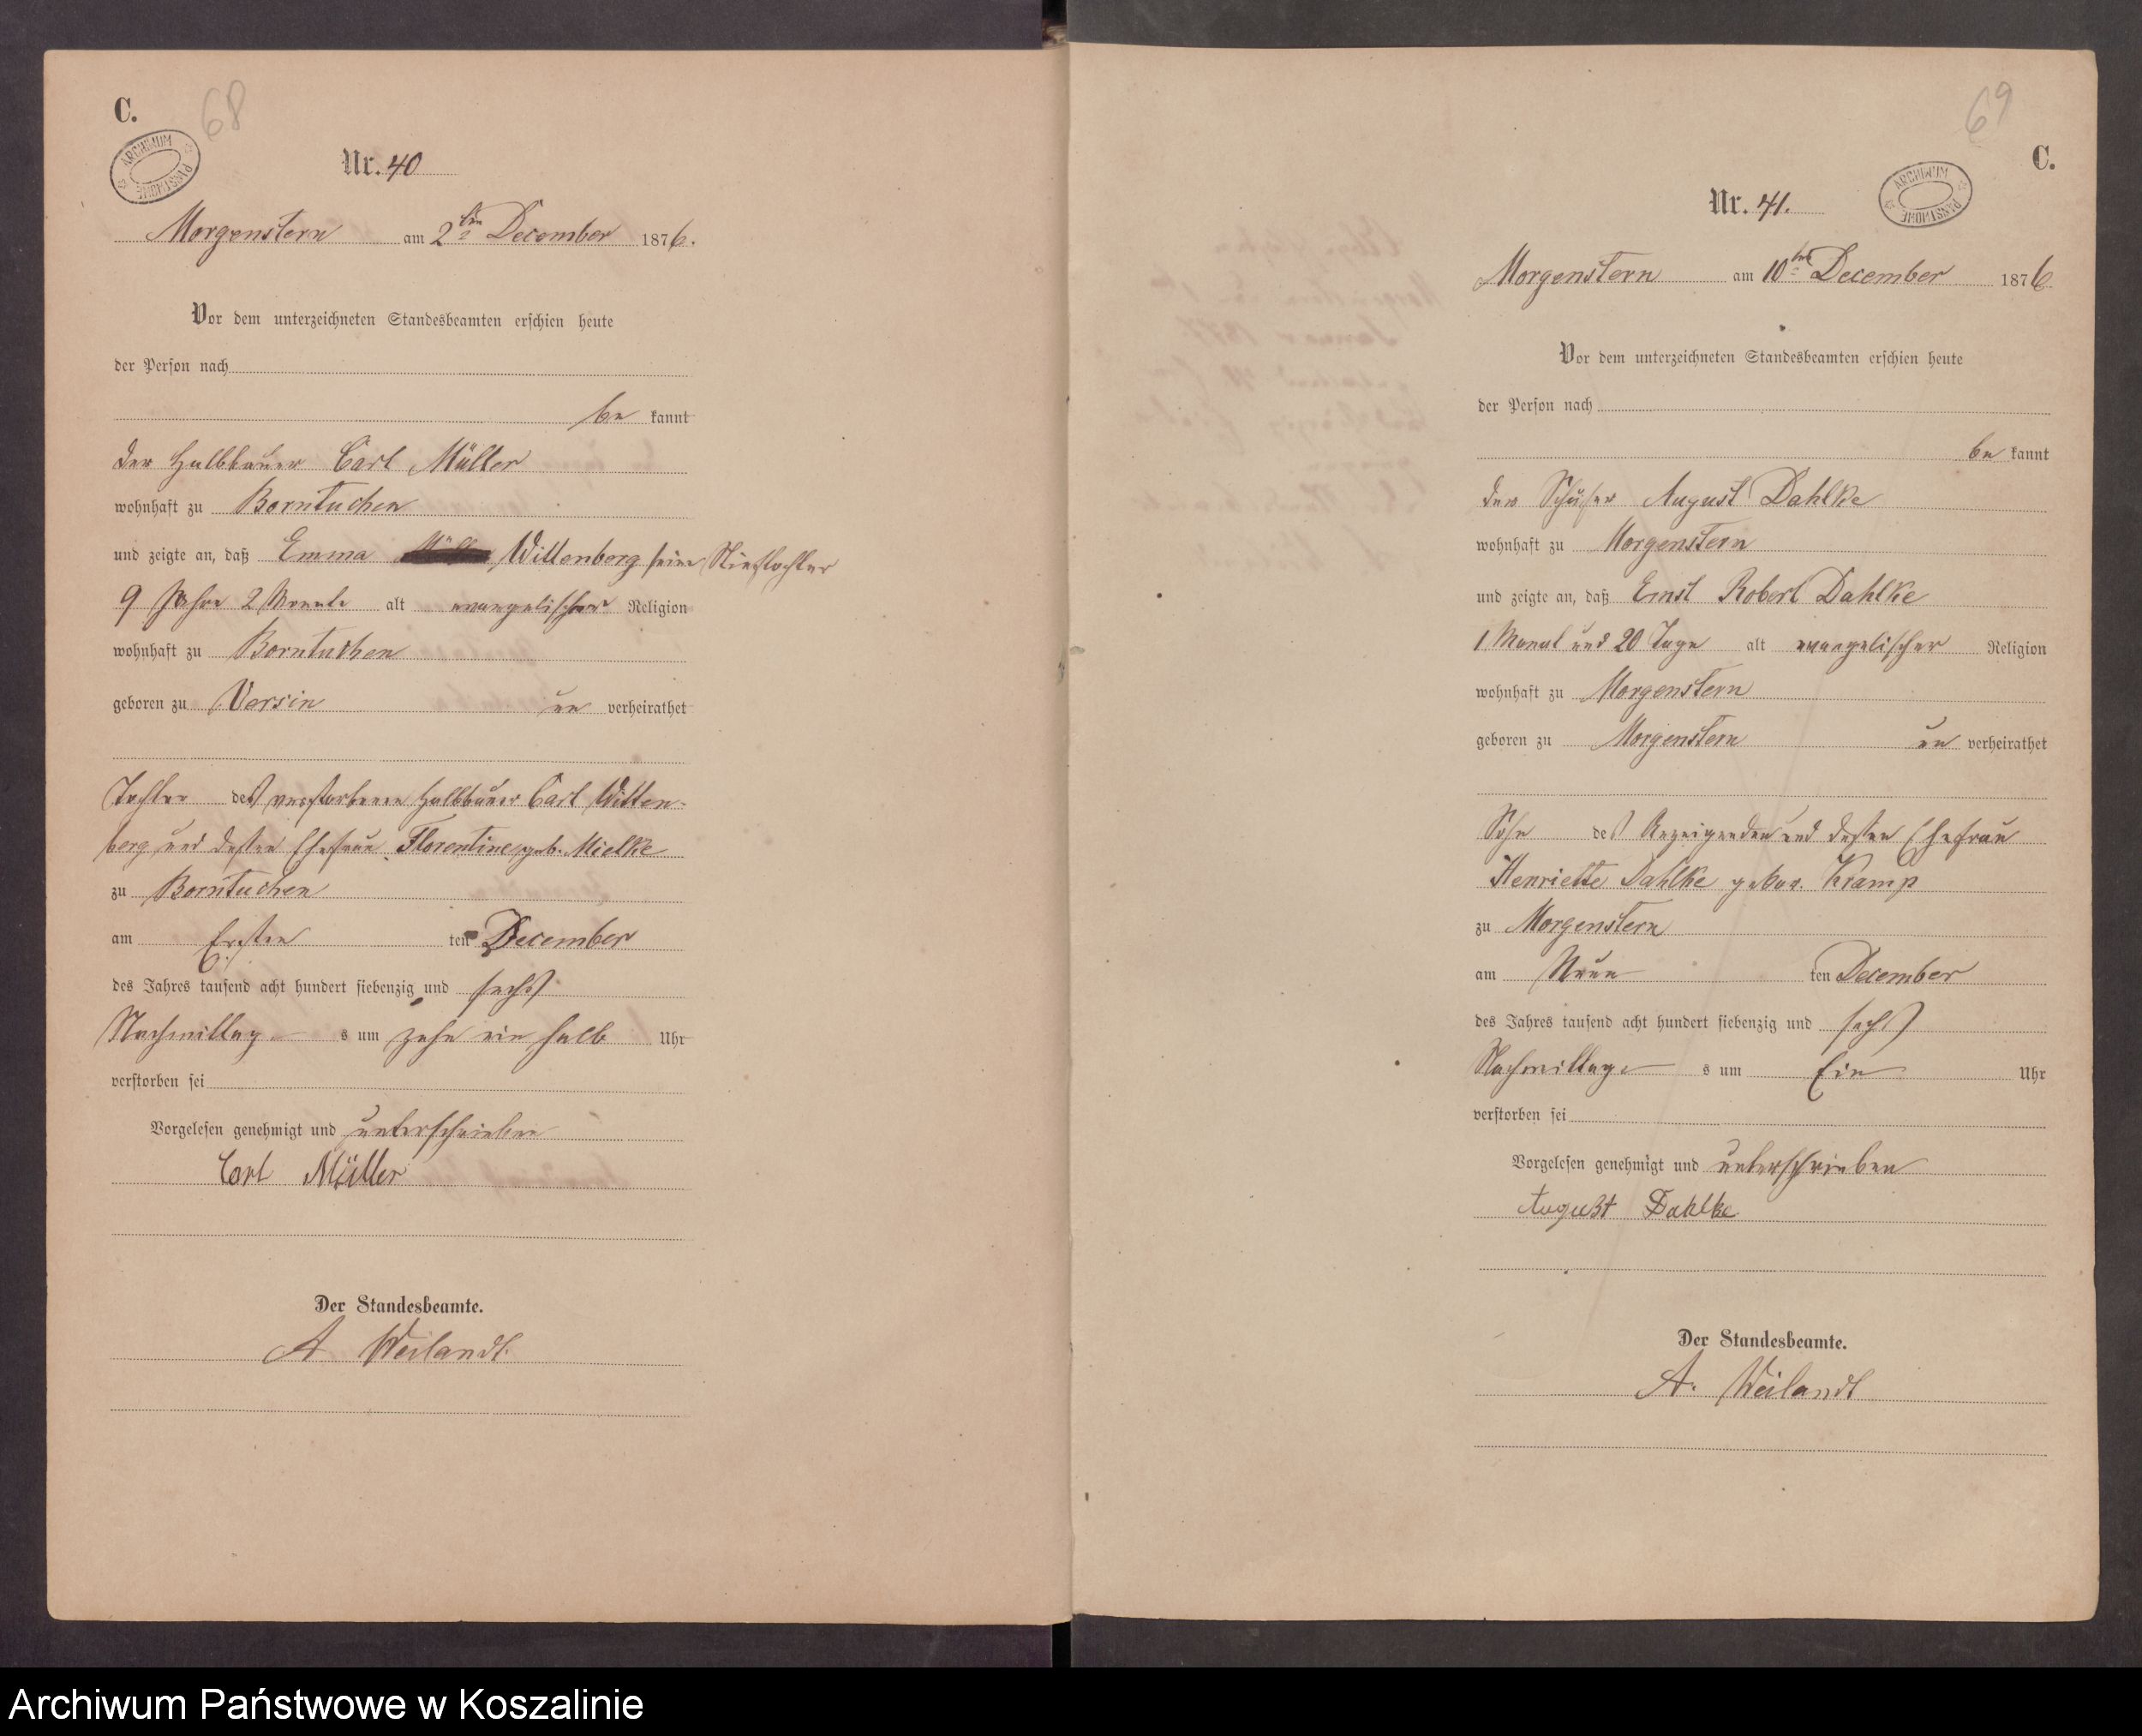 C.
68
ARCHIWUM PAŃSTWOWE
Nr. 40
Morgenstern am 2ten December 1876.
Vor dem unterzeichneten Standesbeamten erschien heute
der Person nach
be kannt
der Halbbauer Carl Müller
wohnhaft zu Borntuchen
und zeigte an, daß Emma Wittenberg seine Stieftochter
9 Jahre 2 Monate alt evangelischer Religion
wohnhaft zu Borntuchen
geboren zu Versin un verheirathet
Tochter des verstorbenen Halbbauer Carl Witten-
berg und dessen Ehefrau Florentine geb. Mielke
zu Borntuchen
am Ersten ten December
des Jahres tausend acht hundert siebenzig und sechs
Nachmittag s um zehn ein halb Uhr
verstorben sei
Vorgelesen genehmigt und unterschrieben
Carl Müller
Der Standesbeamte.
A Weilandt.
69
C.
ARCHIWUM PAŃSTWOWE
Nr. 41.
Morgenstern am 10ten December 1876
Vor dem unterzeichneten Standesbeamten erschien heute
der Person nach
be kannt
der Schäfer August Dahlke
wohnhaft zu Morgenstern
und zeigte an, daß Ernst Robert Dahlke
1 Monat und 20 Tage alt evangelischer Religion
wohnhaft zu Morgenstern
geboren zu Morgenstern un verheirathet
Sohn des Anzeigenden und dessen Ehefrau
Henriette Dahlke gebor. Kramp
zu Morgenstern
am Neun ten December
des Jahres tausend acht hundert siebenzig und sechs
Nachmittag s um Ein Uhr
verstorben sei
Vorgelesen genehmigt und unterschrieben
August Dahlke
Der Standesbeamte.
A. Weilandt
Archiwum Państwowe w Koszalinie